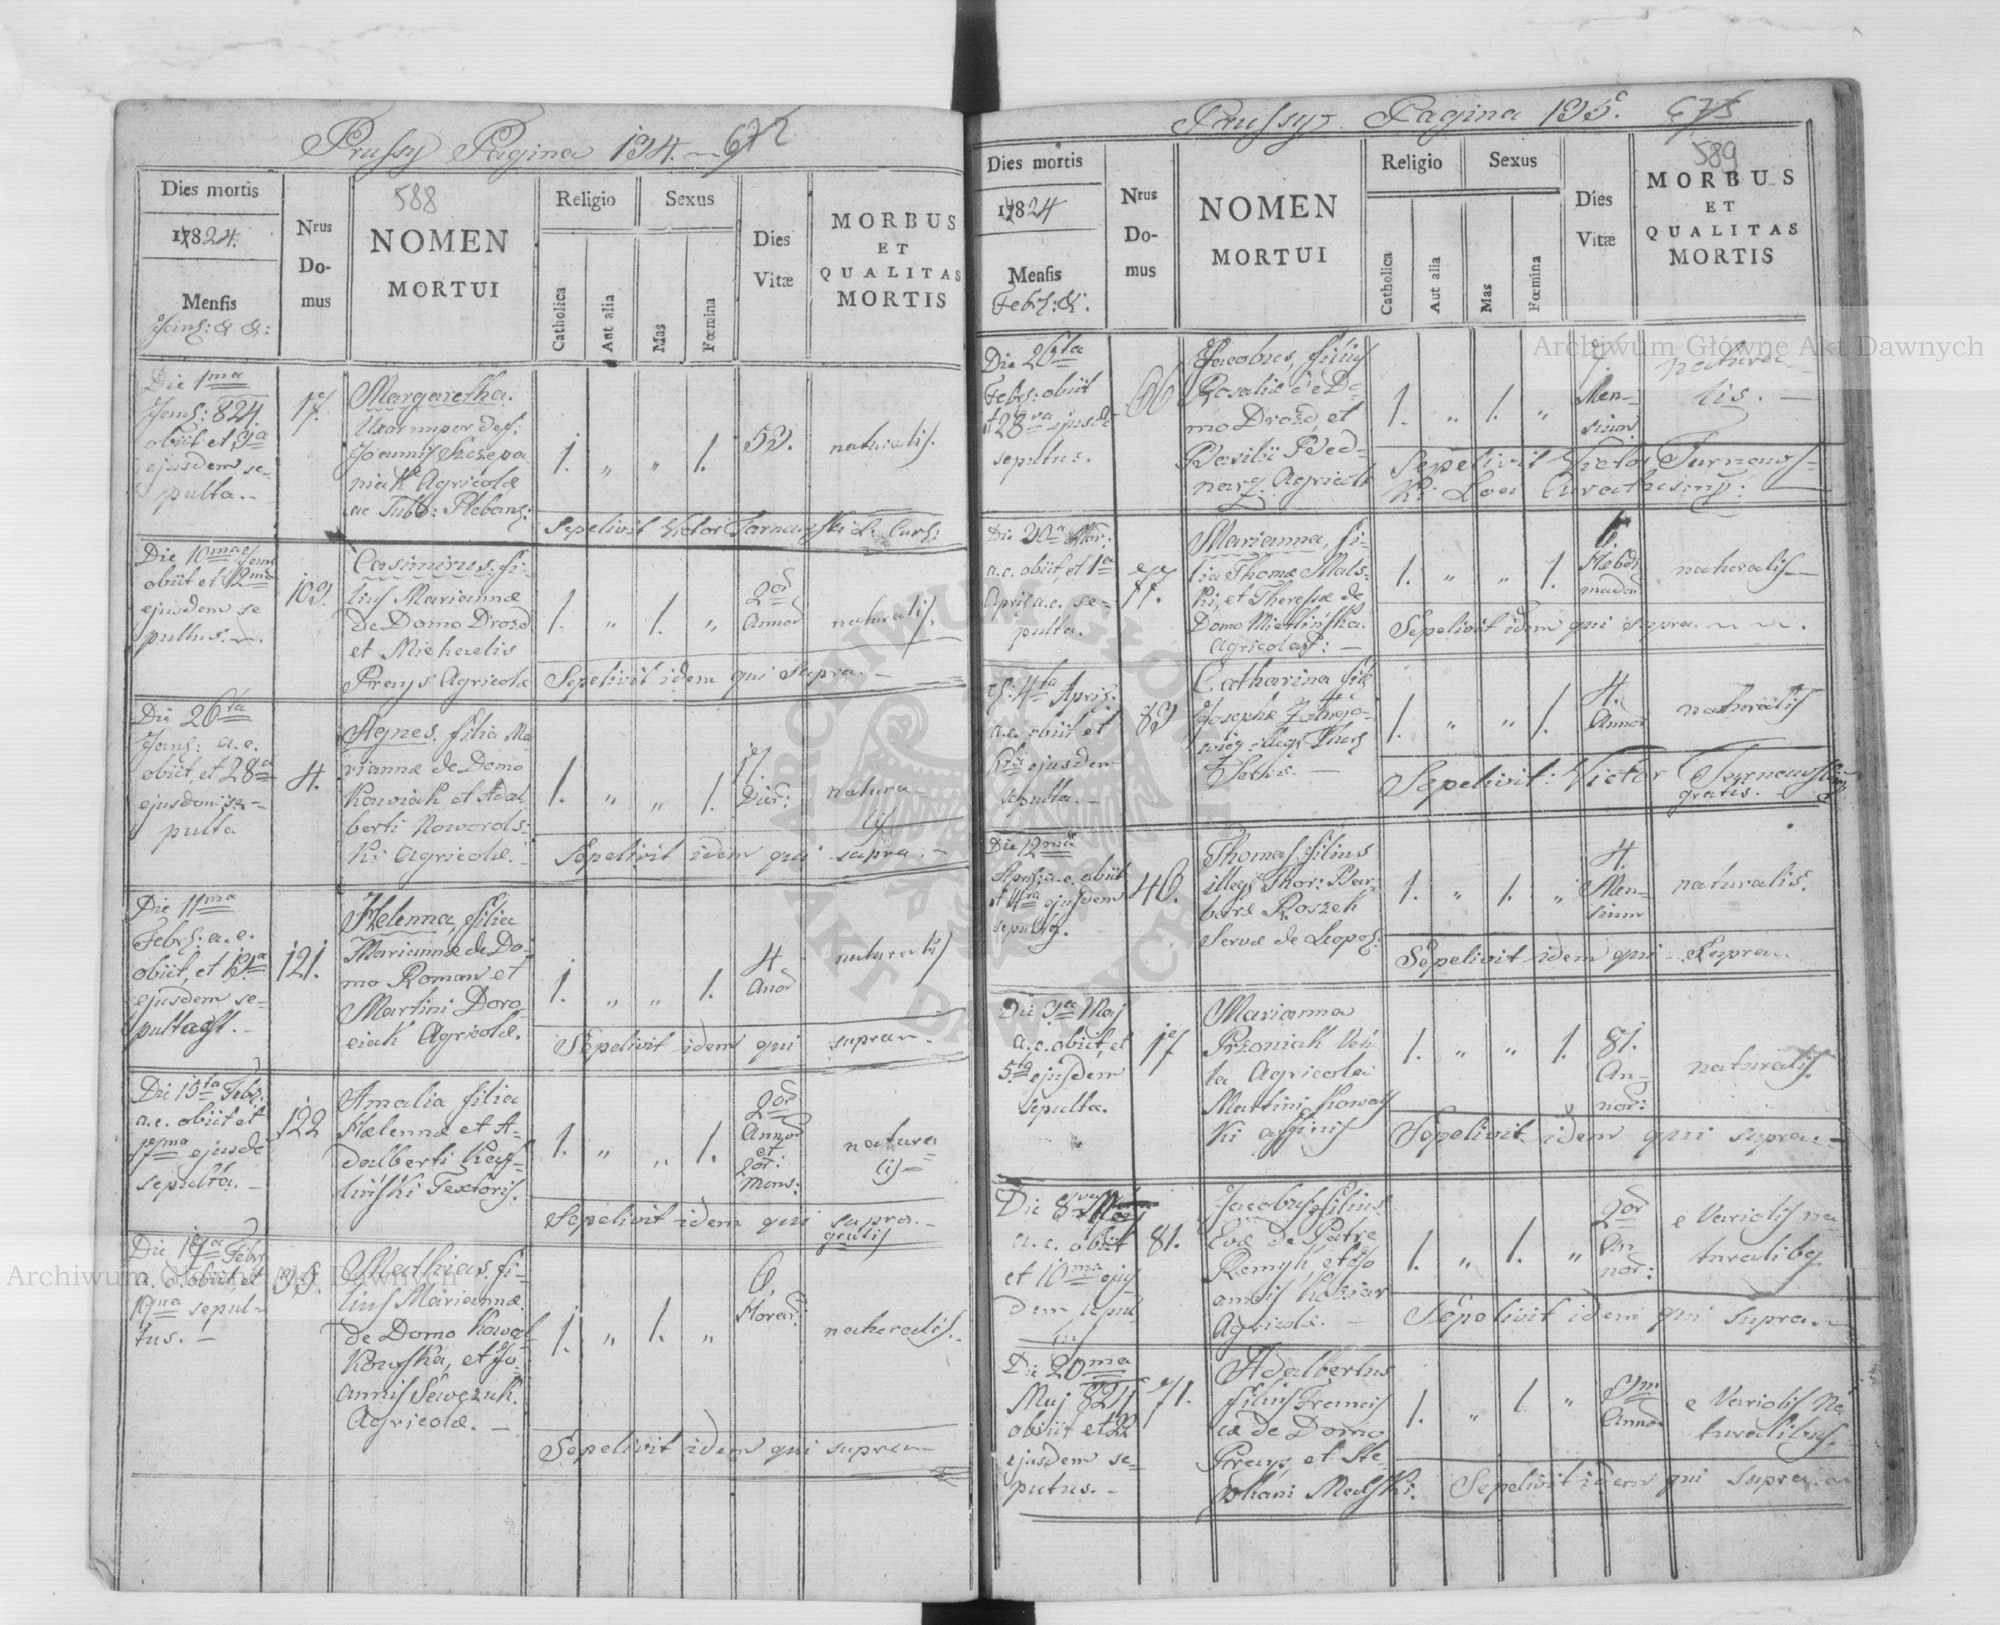 Prussy Pagina 134. 672
Dies mortis
1824.
Mensis
Nrus
Do-
mus
588
NOMEN
MORTUI
Religio
Catholica
Aut alia
Sexus
Mas
Fœmina
Dies
Vitæ
MORBUS
ET
QUALITAS
MORTIS
Die 1ma
Janŗ: 824
obiit et 3ia
ejusdem se-
pulta.
17.
Margaretha.
Uxor nuper def:
Joannis Szczepa
niak Agricolæ
1. „ „ 1.
53.
naturalis.
Sepelivit Victor Tarnawski L. Curs:
Die 10ma
obiit et 12ma
ejusdem se
pultus.
103.
Casimirus. fi-
lius Mariannæ
de Domo Drozd
et Michaelis
Preys Agricolæ
1. „ 1. „
2or
Annor
naturalis.
Sepelivit idem qui Supra. -
Die 26ta
Janŗ: a.c.
obiit, et 28a
ejusdem se-
pulta
4.
Agnes. filia Ma
riannæ de Domo
Kowiak et Adal
berti Noworols:
ki Agricolæ.
1. „ „ 1.
17
Dier:
natura-
lis
Sepelivit idem qui supra. -
Die 11ma
Febr: a.c.
obiit, et 13a
ejusdem se-
pulta est. -
121.
Helenna, filia
Mariannæ de Do-
mo Roman et
Martini Doro
ciak Agricolæ.
1. „ „ 1.
4
Anor
naturalis
Sepelivit idem qui supra. -
Die 15ta Febr:
a.c. obiit et
17ma ejusde
sepulta. -
122
Amalia filia
Hælennæ et A-
dalberti Kas-
liński Textoris.
1. „ „ 1.
2or
Annor
et
2or:
Mens:
natura
lis
Sepelivit idem qui supra. -
gratis
Die 17a Febr
a.c. obiit, et
19na sepul-
tus. -
33.
Mathias. fi-
lius Mariannæ
de Domo Kowal-
kowska, et Jo-
annis Sewczuk.
Agricolæ. -
1. „ 1. „
6.
Horar:
naturalis. -
Sepelivit idem qui supra
Prussy Pagina 135. 673
Dies mortis
1824
Mensis
Febr: &.
Nrus
Do-
mus
NOMEN
MORTUI
Religio
Catholica
Aut alia
Sexus
Mas
Fœmina
Dies
Vitæ
589
MORBUS
ET
QUALITAS
MORTIS
Die 26ta
Febr: obiit
et 28va ejusde
sepultus.
66
Jacobus, filius
Rosaliæ de Do
mo Drozd, et
Basilii Bed-
narz. Agricolæ
1. „ 1. „
7.
Men-
sium
natura-
lis. -
Sepelivit Victor Turnows-
ki Loci Curatus mp: -
Die 30a Mar:
a.c. obiit, et 1a
Apris a.c. se-
pulta.
77.
Marianna, fi-
lia Thomæ Mals-
ki, et Theressæ de
Domo Mietlińska
Agricolar: -
1. „ „ 1.
6.
Hebdo
madar
naturalis
Sepelivit idem qui supra
4ta Apris:
a.c. obiit et
6ta ejusdem
sepulta. -
83
Catharina fili
Josephæ
1. „ „ 1.
4.
Annor
naturalis
Sepelivit: Victor Turnowski
gratis.
Die 12ma
Apris: a.c. obiit
et 14ta ejusdem
sepultus.
46.
Thomas filius
illegi Thor: Bar
baræ Roszek
Servæ de Leopol:
1. „ 1. „
4.
Men-
sium
naturalis.
Sepelivit idem qui Supra.
Die 3ia Maj
a.c. obiit, et
5ta ejusdem
sepulta.
17
Marianna
Przoniak Vetu
la Agricolæ
Martini Koways
ki affinis
1. „ „ 1.
81.
An-
nor:
naturalis.
Sepelivit idem qui supra -
Die 8va Maj
a.c. obiit
et 10ma ejus
dem sepul
tus
81.
Jacobus filius
Evæ de Patre
Remyk et Jo
annis Kolziar
Agricolæ. -
1. „ 1. „
2or
An
nor:
e Variolis na
turalibs
Sepelivit idem qui supra
Die 20ma
Maj 824
obiit et 22
ejusdem se-
pultus. -
71.
Adalbertus
filius Francis
cæ de Domo
Preys, et Ste-
phani Malski.
1. „ 1. „
Annor
e Variolis Na
turalibus.
Sepelivit idem qui supra.
Archiwum Główne Akt Dawnych
Archiwum Główne Akt Dawnych
ARCHIWUM GŁÓWNE AKT DAWNYCH